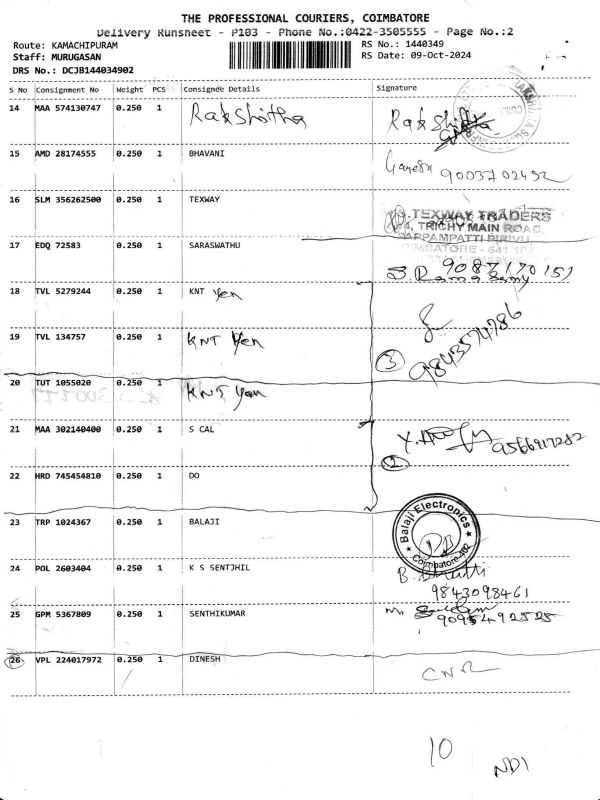 THE PROFESSIONAL COURIERS, COIMBATORE
Delivery Runsheet - P103 - Phone No.:0422-3505555 - Page No.:2
Route: KAMACHIPURAM RS No.: 1440349
Staff: MURUGASAN RS Date: 09-Oct-2024
DRS No.: DCJB144034902
S No Consignment No Weight PCS Consignee Details Signature
14 MAA 574130747 0.250 1 Rakshitha Rakshitha
15 AMD 28174555 0.250 1 BHAVANI Ganesh 9003702492
16 SLM 356262500 0.250 1 TEXWAY
TEXWAY TRADERS
TRICHY MAIN ROAD,
COIMBATORE - 641
17 EDQ 72583 0.250 1 SARASWATHU 9087170151
S Rama Samy
18 TVL 5279244 0.250 1 KNT Yen
19 TVL 134757 0.250 1 KNT Yen 3 9843574786
20 TUT 1055020 0.250 1 KNT Yan
21 MAA 302140400 0.250 1 S CAL 9566917282
22 HRD 745454810 0.250 1 DO 2
23 TRP 1024367 0.250 1 BALAJI
Balaji Electronics
Coimbatore-402
24 POL 2603404 0.250 1 K S SENTJHIL
9843098461
25 GPM 5367809 0.250 1 SENTHIKUMAR M.
9095492525
26 VPL 224017972 0.250 1 DINESH CNR
10 NDI